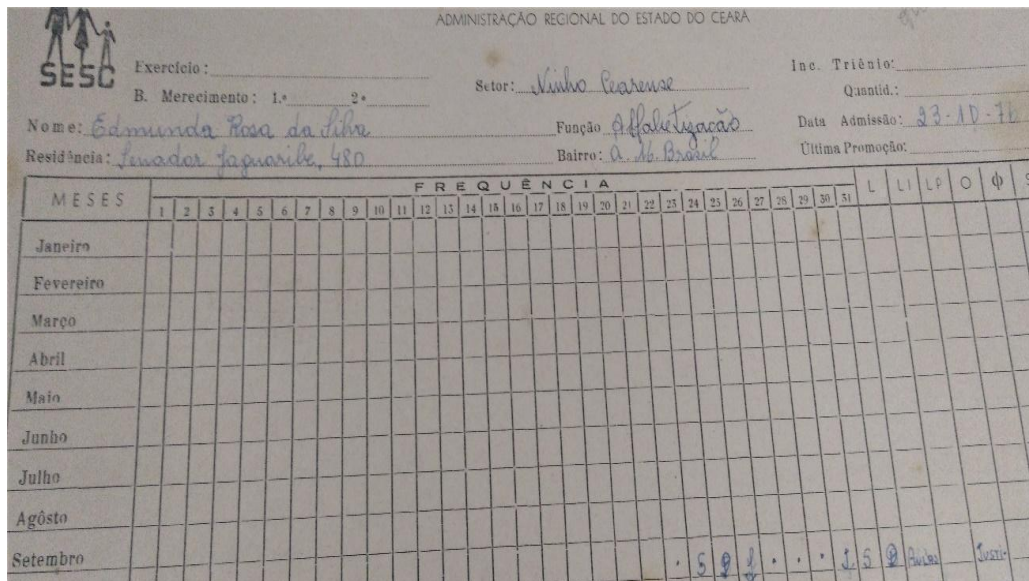 ADMINISTRAÇÃO REGIONAL DO ESTADO DO CEARÁ
SESC
Exercício: Setor: Ninho Cearense Inc. Triênio:
B. Merecimento: 1.º 2º Quantid.:
Nome: Edmunda Rosa da Silva Função Alfabetização Data Admissão: 23-10-76
Residência: Senador Jaguaribe, 480 Bairro: A. M. Brasil Última Promoção:
MESES FREQUÊNCIA L LI LP O ϕ
1 2 3 4 5 6 7 8 9 10 11 12 13 14 15 16 17 18 19 20 21 22 23 24 25 26 27 28 29 30 31
Janeiro
Fevereiro
Março
Abril
Maio
Junho
Julho
Agôsto
Setembro